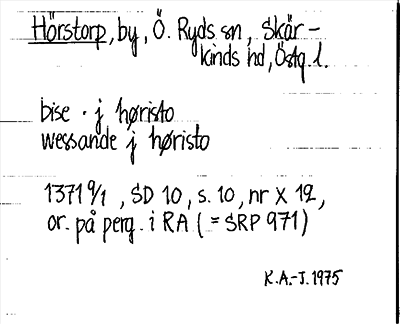 Hörstorp, by, Ö. Ryds sn, Skär-
kinds hd, Östg. l.
bise . j høristo
wessande j høristo
1371 9/1, SD 10, s. 10, nr X 12,
or. på perg. i RA (= SRP 971)
K.A.-J. 1975